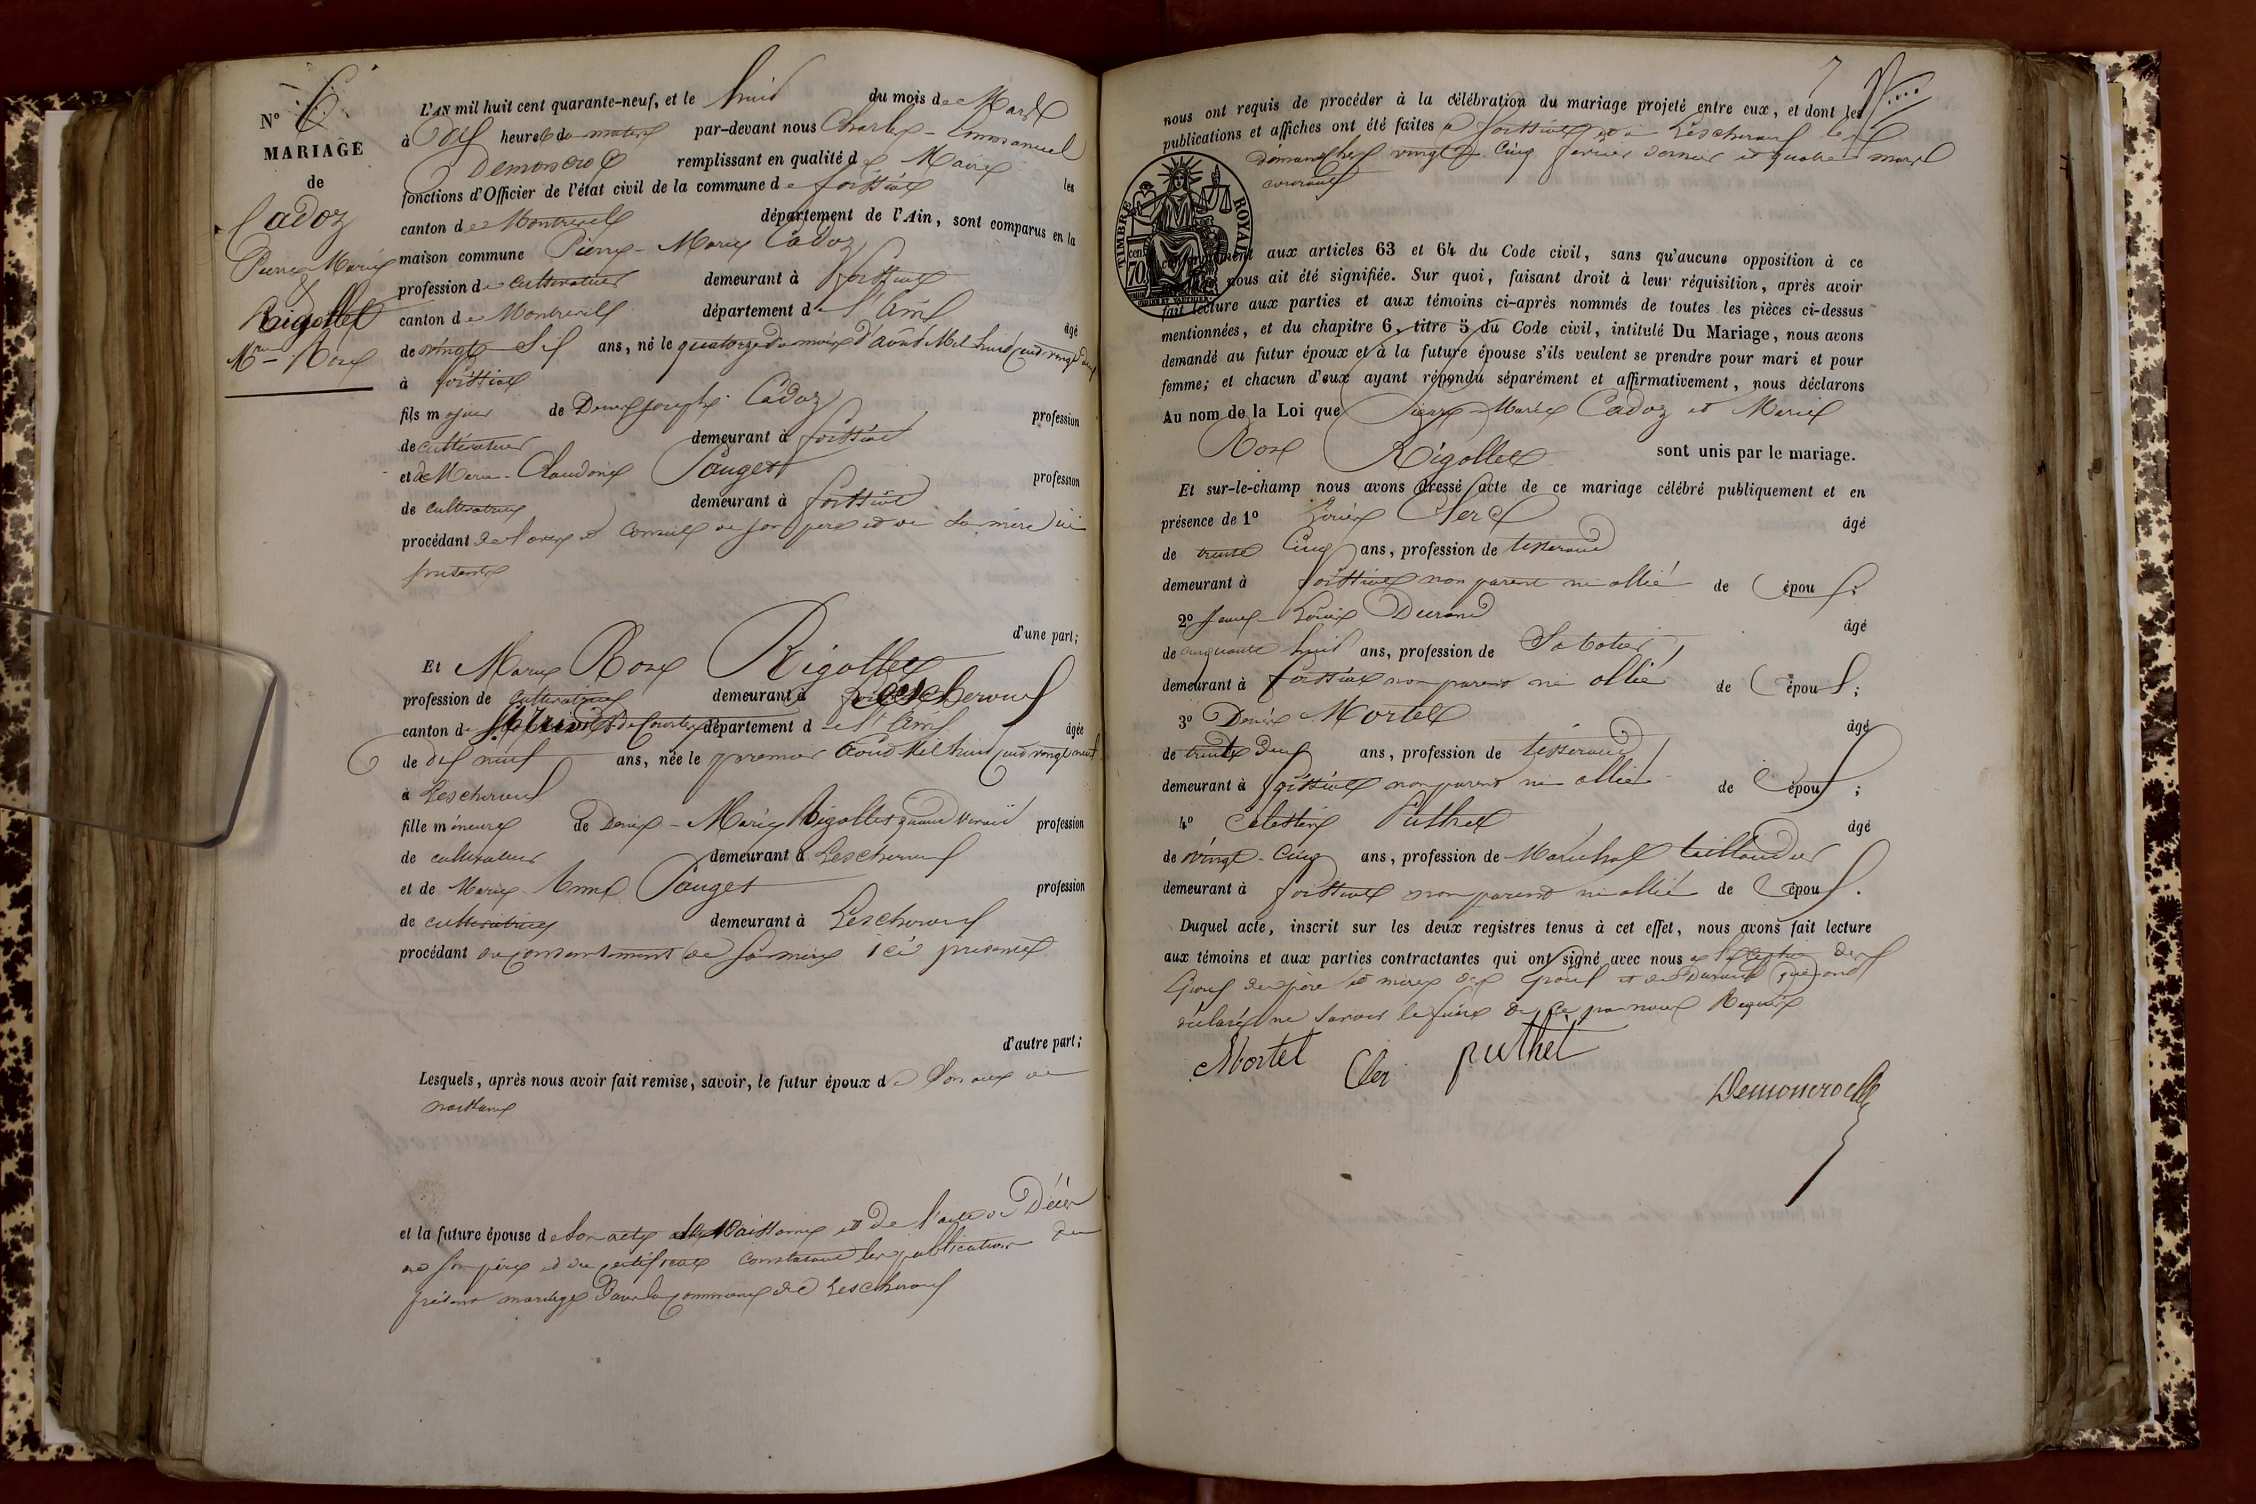 N° 6
MARIAGE
de
Cadoz
Pierre Marie
&
Rigollet
Mie Rose
L'AN mil huit cent quarante-neuf, et le huit du mois de Mars
à dix heures du matin par-devant nous Charles-Emmanuel
Demoncroc remplissant en qualité de Maire les
fonctions d'Officier de l'état civil de la commune de foissiat
canton de Montrevel département de l'Ain, sont comparus en la
maison commune Pierre-Marie Cadoz
profession de cultivateur demeurant à foissiat
canton de Montrevel département de l'Ain âgé
de vingt Six ans, né le quatorze du mois d'août Mil huit cent vingt deux
à foissiat
fils majeur de Denis joseph Cadoz profession
de cultivateur demeurant à foissiat
et de Marie-Claudine Pauget profession
de cultivatrice demeurant à foissiat
procédant de l'avis et Conseil de son père et de sa mère ici
présents
d'une part;
Et Marie Rose Rigollet
profession de cultivatrice demeurant à Lescheroux
canton de St trivier de Courtes département de l'Ain âgée
de dix neuf ans, née le premier Aoust Mil huit cent vingt neuf
à Lescheroux
fille mineure de Denis-Marie Rigollet quand vivait profession
de cultivateur demeurant à Lescheroux
et de Marie-Anne Pauget profession
de cultivatrice demeurant à Lescheroux
procédant du consentement de sa mère ici présente
d'autre part;
Lesquels, après nous avoir fait remise, savoir, le futur époux de Son acte de
naissance
et la future épouse de son acte de Naissance et de l'acte de Décès
de son père et du certificat constatant les publications du
présent mariage dans la commune de Lescheroux
7
nous ont requis de procéder à la célébration du mariage projeté entre eux, et dont les
publications et affiches ont été faites à foissiat et à Lescheroux les
dimanches vingt Cinq février dernier et quatre mars
courant
TIMBRE ROYAL
70 cent
aux articles 63 et 64 du Code civil, sans qu'aucune opposition à ce
nous ait été signifiée. Sur quoi, faisant droit à leur réquisition, après avoir
fait lecture aux parties et aux témoins ci-après nommés de toutes les pièces ci-dessus
mentionnées, et du chapitre 6, titre 5 du Code civil, intitulé Du Mariage, nous avons
demandé au futur époux et à la future épouse s'ils veulent se prendre pour mari et pour
femme; et chacun d'eux ayant répondu séparément et affirmativement, nous déclarons
Au nom de la Loi que Pierre-Marie Cadoz et Marie
Rose Rigollet sont unis par le mariage.
Et sur-le-champ nous avons dressé acte de ce mariage célébré publiquement et en
présence de 1° Louis Clerc âgé
de trente Cinq ans, profession de tisserand
demeurant à foissiat non parent ni allié de l'époux;
2° Louis Durand âgé
de cinquante huit ans, profession de Sabotier
demeurant à foissiat non parent ni allié de l'époux;
3° Denis Mortel âgé
de trente deux ans, profession de tisserand
demeurant à foissiat non parent ni allié de l'époux;
4° Celestin Puthet âgé
de vingt-Cinq ans, profession de Maréchal taillandier
demeurant à foissiat non parent ni allié de l'époux.
Duquel acte, inscrit sur les deux registres tenus à cet effet, nous avons fait lecture
aux témoins et aux parties contractantes qui ont signé avec nous à l'exception des
Epoux des père et mère des époux et de Durand qui ont
déclaré ne savoir le faire de ce par nous Requis
Mortel Cler puthet
Demoncroc